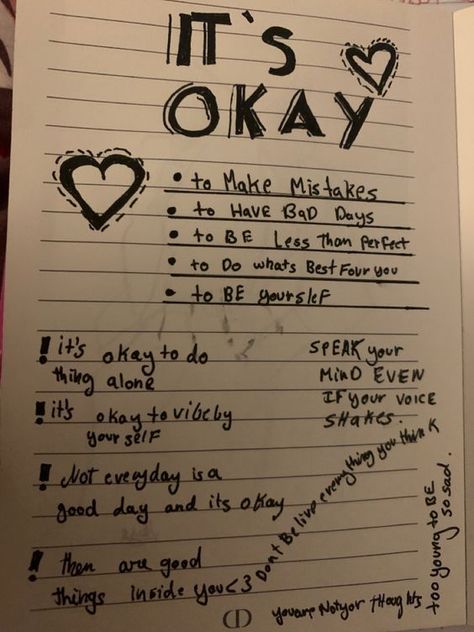 IT'S
OKAY
• to Make Mistakes
• to Have Bad Days
• to BE Less Than perfect
• to Do whats Best Four you
• to BE yourslef
! it's okay to do
thing alone
! it's okay to vibe by
your self
! Not everyday is a
good day and its okay
! then are good
things inside you<3
SPEAK your
MinD EVEN
IF your VOICE
SHAKES.
Don't Be live everything you think
too young to BE
so sad.
youare Notyor Thoughts